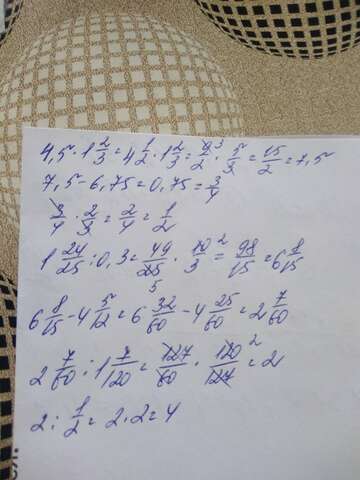 4,5 · 1 2/3 = 4 1/2 · 1 2/3 = 9/2 3 · 5/3 = 15/2 = 7,5
7,5 - 6,75 = 0,75 = 3/4
3/4 · 2/3 = 2/4 = 1/2
1 24/25 : 0,3 = 49/25 5 · 10/3 2 = 98/15 = 6 8/15
6 8/15 - 4 5/12 = 6 32/60 - 4 25/60 = 2 7/60
2 7/60 : 1 7/120 = 127/60 · 120/127 2 = 2
2 : 1/2 = 2 · 2 = 4